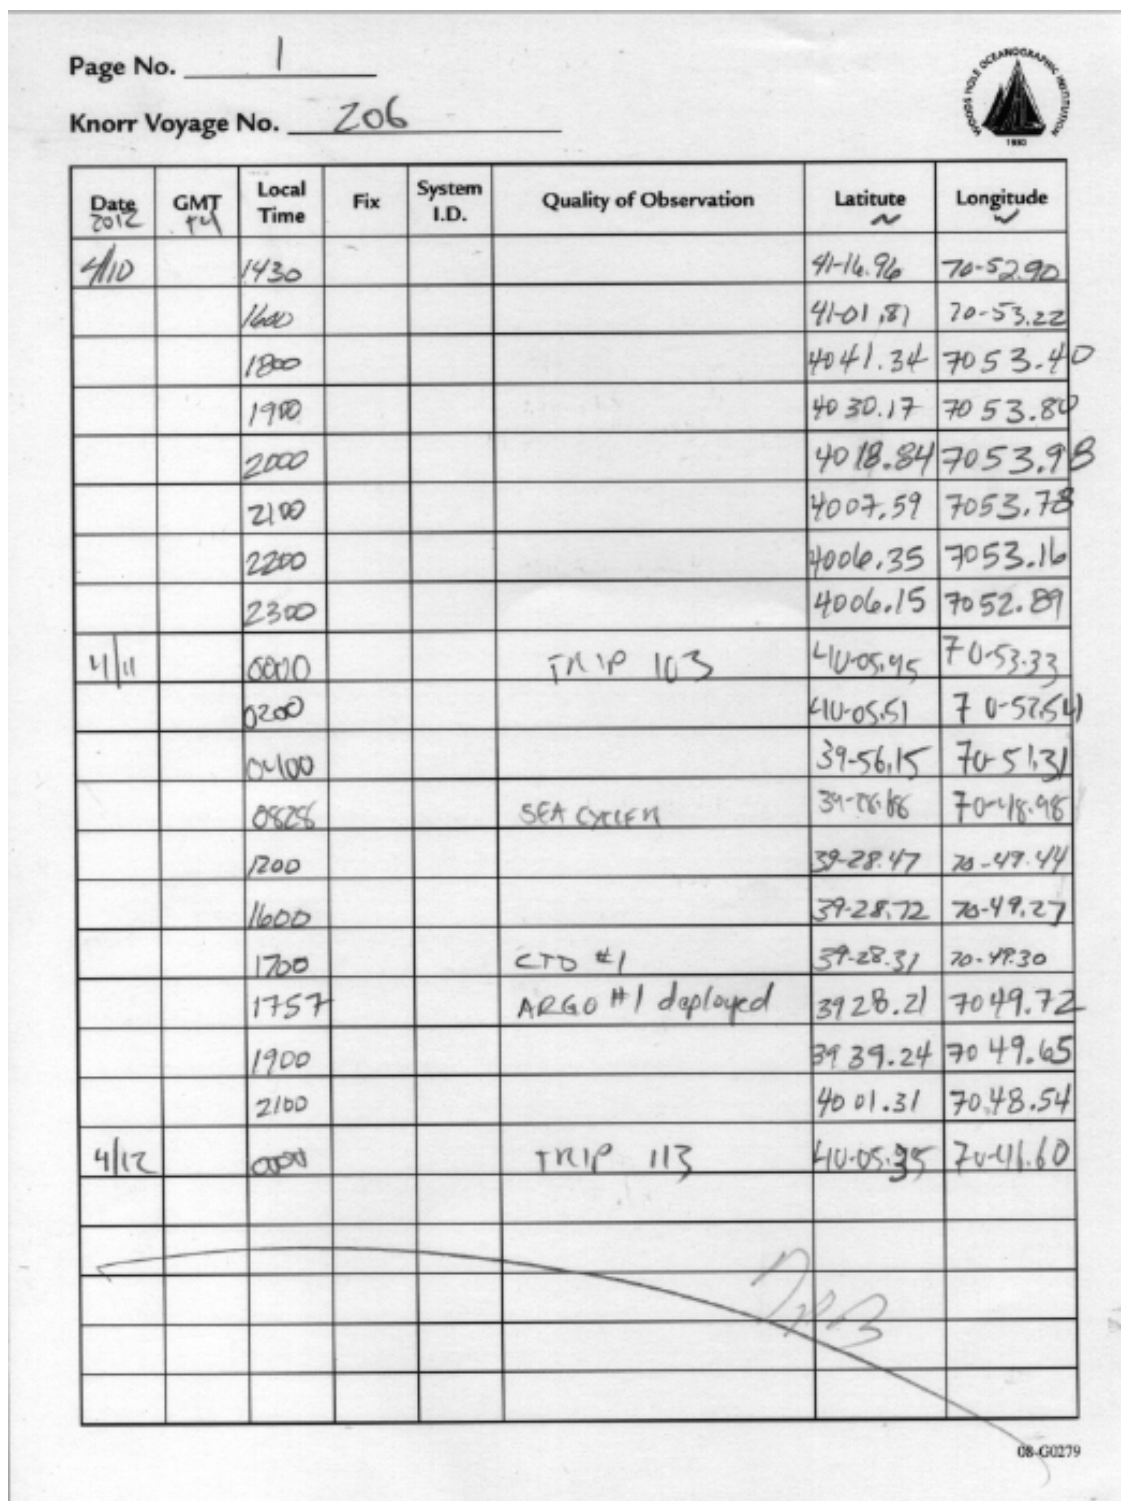 Page No. 1
Knorr Voyage No. 206
WOODS HOLE OCEANOGRAPHIC INSTITUTION
1930
Date 2012 GMT +4 Local Time Fix System I.D. Quality of Observation Latitute N Longitude W
4/10 1430 41-16.96 70-52.90
1600 41-01.81 70-53.22
1800 4041.34 7053.40
1900 4030.17 7053.80
2000 4018.84 7053.98
2100 4007.59 7053.78
2200 4006.35 7053.16
2300 4006.15 7052.89
4/11 0000 TRIP 103 40-05.95 70-53.33
0200 40-05.51 70-52.54
0400 39-56.15 70-51.31
0828 SEA CYCLER 70-48.98
1200 39-28.47 70-49.44
1600 39-28.72 70-49.27
1700 CTD #1 39-28.31 70-49.30
1757 ARGO #1 deployed 3928.21 7049.72
1900 3939.24 7049.65
2100 4001.31 7048.54
4/12 0000 TRIP 113 40-05.35 70-46.60
08-G0279